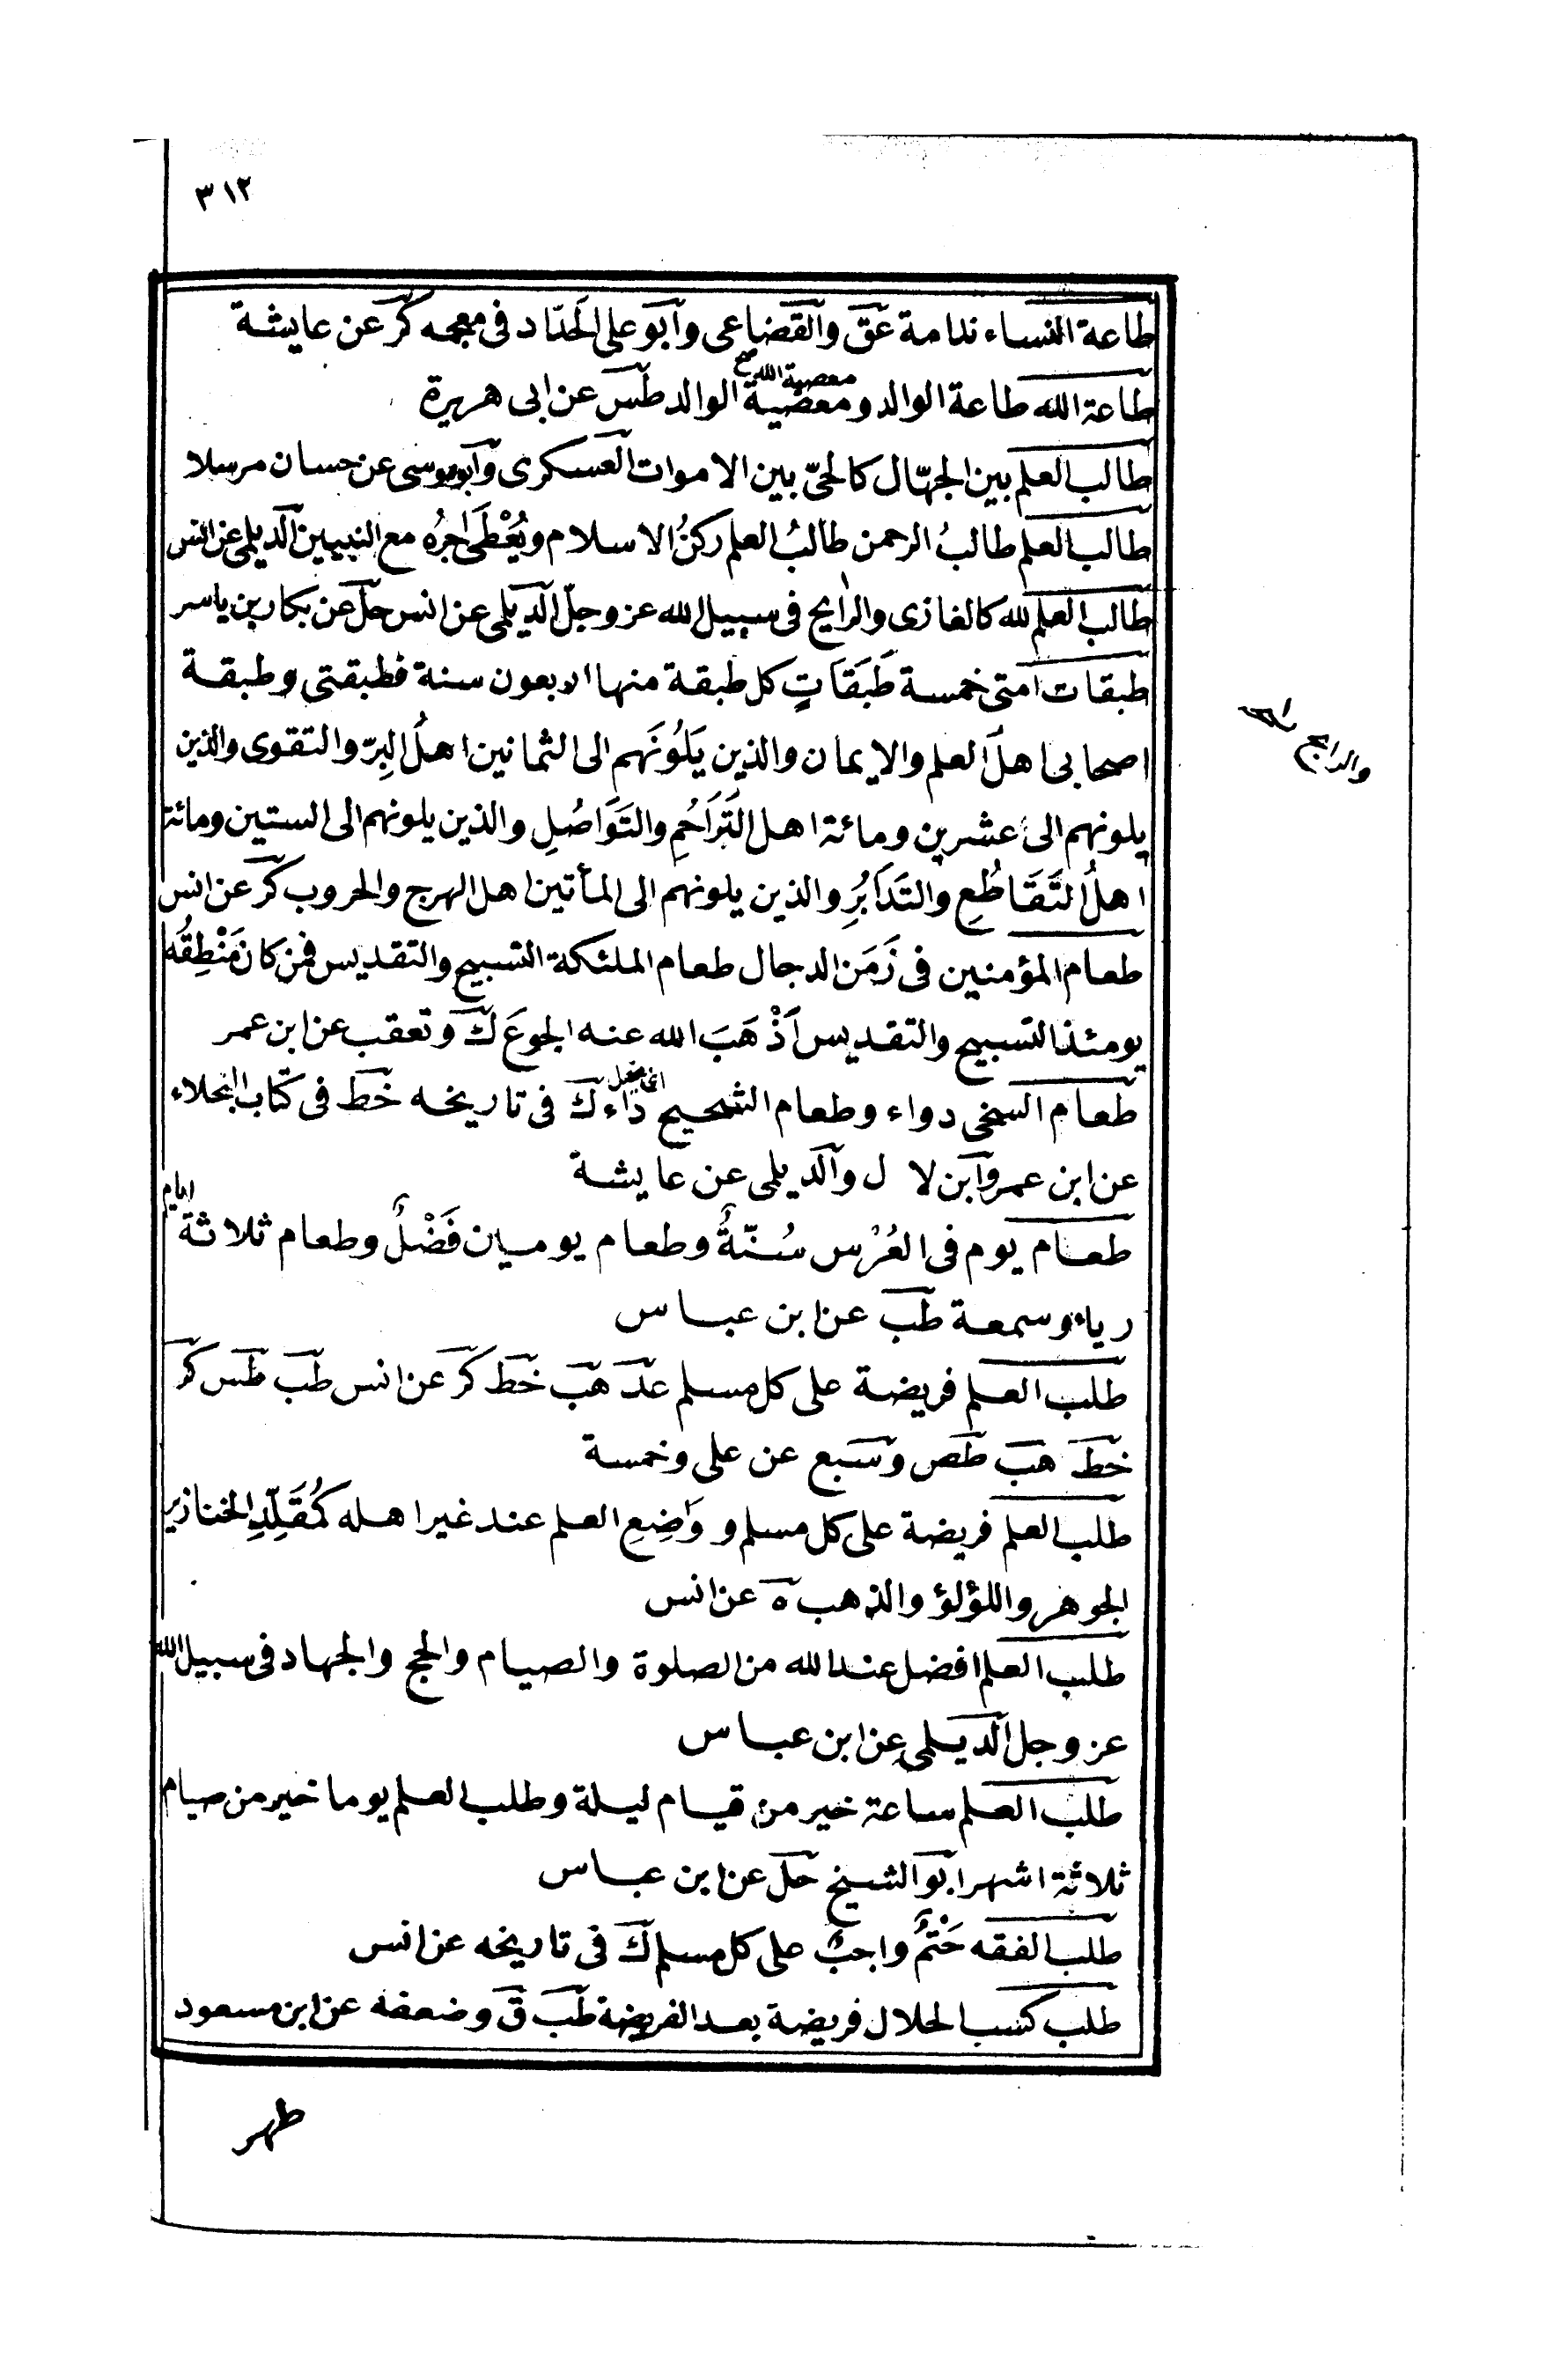 ٣١٢
طاعة النساء ندامة عق والقضاعى وابو على الحدّاد فى معجمه كر عن عايشة
طاعة الله طاعة الوالد ومعصية الله معصية الوالد طس عن ابى هريرة
طالب العلم بين الجهّال كالحىّ بين الاموات العسكرى وابو موسى عن حسان مرسلا
طالب العلم طالبُ الرحمن طالبُ العلم ركنُ الاسلام ويُعْطَى اجرُه مع النبيين الديلمى عن انس
طالب العلم لله كالغازى والرايح فى سبيل الله عز وجلّ الديلمى عن انس حل عن بكار بن ياسر
طبقات امتى خمسة طَبَقَاتٍ كل طبقة منها اربعون سنة فطبقتى وطبقة
والرايح
اصحابى اهلُ العلم والايمان والذين يَلُونَهم الى الثمانين اهلُ البِرّ والتقوى والذين
يلونهم الى عشرين ومائة اهل التَرَاحُمِ والتَوَاصُلِ والذين يلونهم الى الستين ومائة
اهلُ التَقَاطُعِ والتَدَابُرِ والذين يلونهم الى المأتين اهل الهرج والحروب كر عن انس
طعام المؤمنين فى زَمَن الدجال طعام الملئكة التسبيح والتقديس فمن كان مَنْطِقُه
يومئذ التسبيح والتقديس اَذْهَبَ الله عنه الجوعَ ك وتعقب عن ابن عمر
طعام السخى دواء وطعام الشحيح داء ك فى تاريخه خط فى كتاب البخلاء
عن ابن عمر وابن لال والديلمى عن عايشة
طعام يوم فى العُرْس سُنّةٌ وطعام يومين فَضْلٌ وطعام ثلاثة ايام
رياء وسمعة طب عن ابن عباس
طلب العلم فريضة على كل مسلم عد هب خط كر عن انس طب طس كر
خط هب طص وسبع عن على وخمسة
طلب العلم فريضة على كل مسلم و وَاضِعِ العلم عند غير اهله كَمُقَلِّدِ الخنازير
الجوهر واللؤلؤ والذهب ه عن انس
طلب العلم افضل عند الله من الصلوة والصيام والحج والجهاد فى سبيل الله
عز وجل الديلمى عن ابن عباس
طلب العلم ساعة خير من قيام ليلة وطلب العلم يوما خير من صيام
ثلاثة اشهر ابو الشيخ حل عن ابن عباس
طلب الفقه حَتْمٌ واجبٌ على كل مسلم ك فى تاريخه عن انس
طلب كسب الحلال فريضة بعد الفريضة طب ق وضعفه عن ابن مسعود
طهر